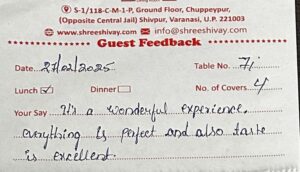 S-1/118-C-M-1-P, Ground Floor, Chuppeypur,
(Opposite Central Jail) Shivpur, Varanasi, U.P. 221003
www.shreeshivay.com info@shreeshivay.com
Guest Feedback
Date 27/02/2025 Table No. 7
Lunch ✓ Dinner No. of Covers 4
Your Say It's a wonderful experience.
everything is perfect and also taste
is excellent.